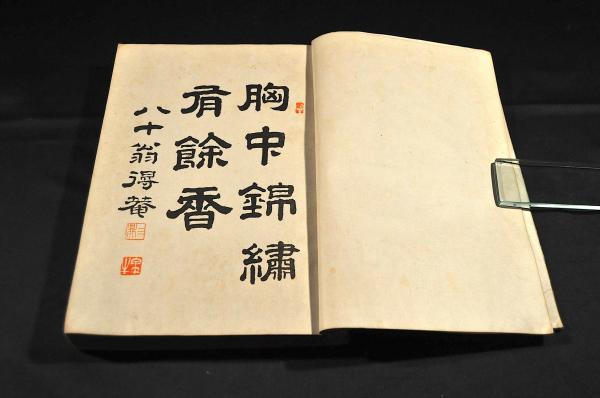 胸中錦繡
有餘香
八十翁得菴